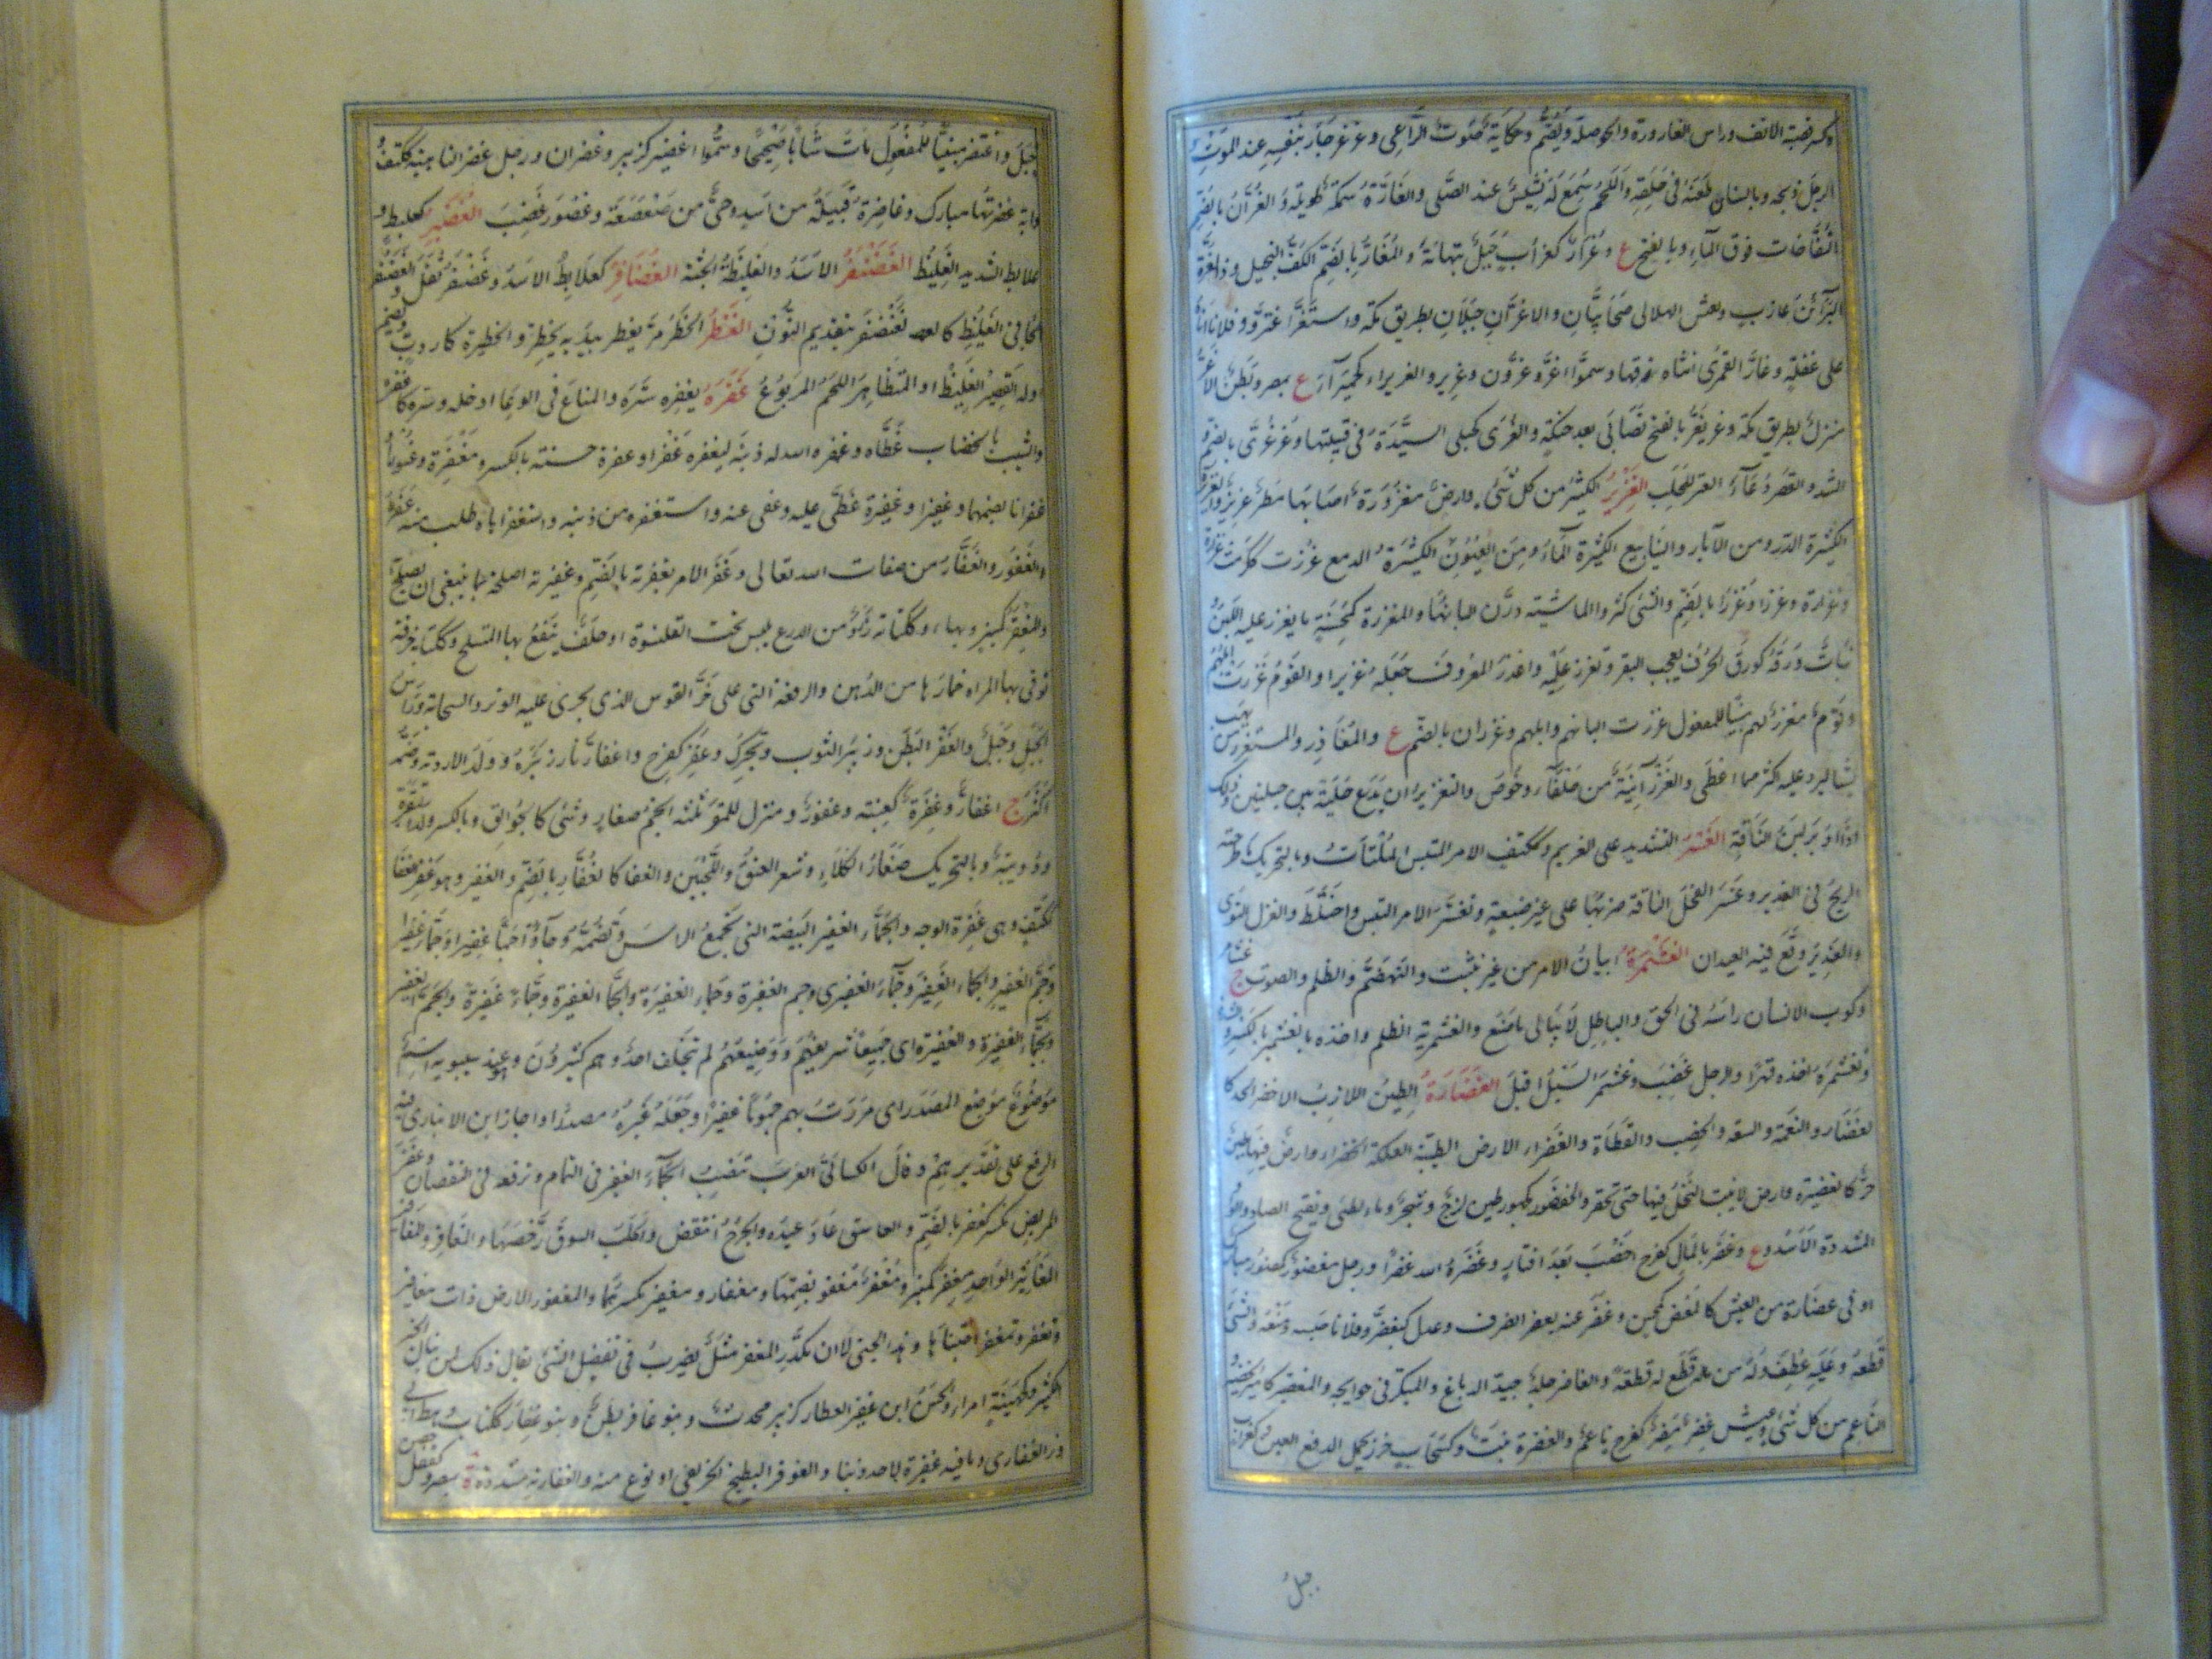 وكسر قصبة الانف وراس القارورة والحوصلة ويضم وحكاية صوت الراعى وغرغر جاد بنفسه عند الموت
الرجل ذبحه وبالسنان طعنه فى حلقه واللحم سمع له نشيش عند الصلى والغارة سمكة طويلة والغران بالضم
النفاخات فوق الماء وبالفتح ع وغرار كغراب جبل بتهامة والمغار بالضم الكف البخيل وذو الغرة
البراء بن عازب ويعيش الهلالى صحابيان والاغران جبلان بطريق مكة واستغر اغتر وفلانا اتاه
على غفلة وغار القمرى انثاه زقها وسموا اغر وغرون وغرير والغريراء كحميراء ع بمصر وبطن الاغر
منزل بطريق مكة وغر يغر بالفتح تصابى بعد حنكة والغرى كحبلى السيدة فى قبيلتها وغرغرى بالضم و
الشد والقصر دعاء العنز للحلب الغزير الكثير من كل شئ وارض مغزورة اصابها مطر غزير والغزيرة
الكثيرة الدر ومن الآبار والينابيع الكثيرة الماء ومن العيون الكثيرة الدمع غزرت ككرمت غزارة
وغزرا وغزرا بالضم والشئ كثر والماشية درت البانها والمغزرة كمحسنة ما يغزر عليه اللبن و
نبات ورقه كورق الحرف يعجب البقر وتغزر عليه واغزر المعروف جعله غزيرا والقوم غزرت ابلهم
وقوم مغزر لهم مبنيا للمفعول غزرت البانهم وابلهم وغزران بالضم ع والمغازر والمستغزر من يهب
شيا ليرد عليه اكثر مما اعطى والغزر آنية من حلفاء وخوص والتغزير ان تدع حلبة بين حلبتين وذلك
اذا ادبر لبن الناقة الغسر التشديد على الغريم وككتف الامر الملتبس الملتاث وبالتحريك ما طرحته
الريح فى الغدير وغسر الفحل الناقة ضربها على غير ضبعة وتغسر الامر التبس واختلط والغزل التوى
والغدير وقع فيه العيدان الغشمرة اتيان الامر من غير تثبت والتهضم والظلم والصوت ج غشامر
وركوب الانسان راسه فى الحق والباطل لا يبالى ما صنع والغشمرية الظلم واخذه بالغشمير بالكسر
وتغشمره اخذه قهرا والرجل غضب وغشمر السيل اقبل الغضارة الطين اللازب الاخضر الحر كا
لغضار والنعمة والسعة والخصب والقطاة والغضراء الارض الطيبة العلكة الخضراء وارض فيها طين
حر كالغضيرة وارض لا ينبت النخل فيها حتى تحفر والخضور كجهور طين لزج وشجر وماء لطيئ وبفتح الضاد والواو
المشددة الاسد وع وغضر بالمال كفرح اخصب بعد اقتار وغضره الله غضرا ورجل مغضور كمنصور مبارك
او فى غضارة من العيش كالمغضر كمحسن وغضر عنه يغضر انصرف وعدل كتغضر وفلانا حبسه ومنعه والشئ
قطعه وعليه عطف وله من ماله قطع له قطعة والغاضر جلد جيد الدباغ والمبكر فى حوايجه والغضير كامير الخضير و
الناعم من كل شئ وعيش غضر مضر كفرح ناعم والغضرة نبت وكسحاب خزف يحمل لدفع العين وكغراب
جبل
جبل واغتضر مبنيا للمفعول مات شابا صحيحا وسموا غضيرا كزبير وغضران ورجل غضر الناصية ككتف
ودابة غضرتها مبارك وغاضرة قبيلة من اسد وحى من صعصعة وغضور غضب الغضبر كعلبط و
علابط الشديد الغليظ الغضنفر الاسد والغليظ الجثة الغضافر كعلابط الاسد وغضفر ثقل والغضنفر
الجافى الغليظ كالغضنفر بتقديم النون الغطر الخطر مر يغطر بيديه يخطر والغطير كاردب ويضم
اوله القصير الغليظ او المتظاهر اللحم المربوع غفره يغفره ستره والمتاع فى الوعاء ادخله وستره كاغفره
والشيب بالخضاب غطاه وغفر الله له ذنبه يغفره غفرا وغفرة حسنة بالكسر ومغفرة وغفورا
غفرانا بضمهما وغفيرا وغفيرة غطى عليه وعفى عنه واستغفره من ذنبه واستغفر اياه طلب منه غفره
والغفور والغفار من صفات الله تعالى وغفر الامر بغفرته بالضم وغفيرته اصلحه بما ينبغى ان يصلح به
والمغفر كمنبر وبهاء وككتابة زرد من الدرع يلبس تحت القلنسوة او حلق يتقنع بها المتسلح وككتابة خرقة
توقى بها المراة خمارها من الدهن والرقعة التى على حز القوس الذى يجرى عليه الوتر والسحابة وراس
الجبل وجبل والغفر البطن وزئبر الثوب ويحرك وغفر كفرح واغفار ثار زئبره وولد الاروية وضمه
اكثر ج اغفار وغفرة كعنبة وغفور ومنزل للقمر ثلثة انجم صغار وشئ كالجوالق وبالكسر ولد البقرة
ودويبة وبالتحريك صغار الكلاء وشعر العنق واللحيين والقفا كالغفار بالضم والغفير وهو غفر القفا
ككتف وهى غفرة الوجه والجماء الغفير البيضة التى تجمع الراس وتضمه وجاؤا جما غفيرا وجماء غفيرا
وجم الغفير وجماء الغفير وجماء الغفيرى وجم الغفيرة وجماء الغفيرة والجماء الغفيرة وجماء غفيرة والجم الغفير
وبجماء الغفير والغفيرة اى جميعا شريفهم ووضيعهم لم يتخلف احد وهم كثيرون وهو عند سيبويه اسم
موضوع موضع المصدر اى مررت بهم جموما غفيرا وجعله غيره مصدرا واجاز ابن الانبارى فيه
الرفع على تقدير هم وقال الكسائى العرب تنصب الجماء الغفير فى التمام وترفعه فى النقصان وغفر
المريض نكس كغفر بالضم والعاشق عاد عيده والجرح انتقض والجلب السوق رخصها والغافر والمغافر
المغاثير الواحد مغفر كمنبر ومغفر مغفور بضمهما ومغفار ومغفير بكسرهما والمغفورا الارض ذات مغافير
وتغفر وتمغفر اجتناها وهذا الجنى لا ان يكد المغفر مثل يضرب فى تفضيل الشئ يقال ذلك لمن ينال الخير
الكثير وكجهينة امراة والحسن ابن غفير العطار كزبير محدث وبنو غافر بطن وبنو غفار ككتاب رهط ابى
ذر الغفارى وما فيه غفيرة لا يغفر ذنبا والغوفر البطيخ الخريفى او نوع منه والغفارية مشددة ة بمصر وكقفل حصن